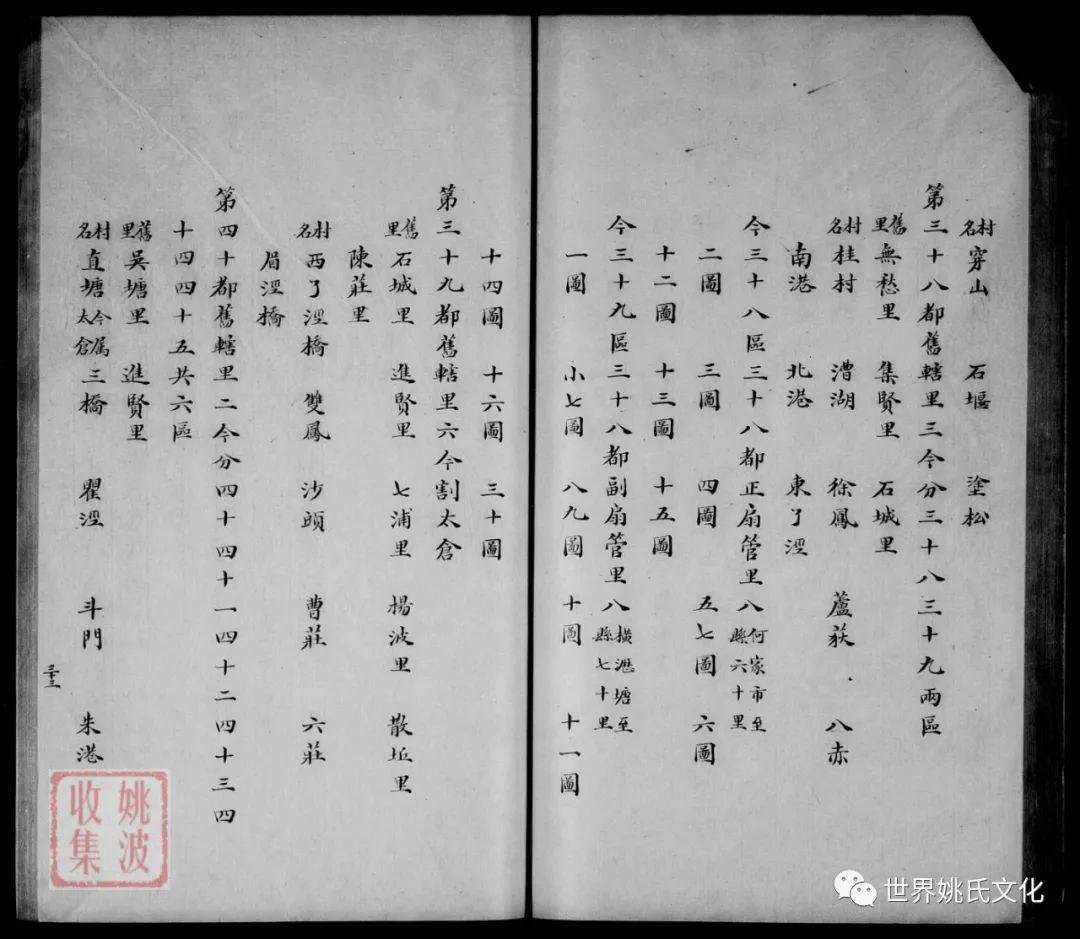 村名 穿山 石堰 塗松
第三十八都舊轄里三今分三十八三十九兩區
舊里 無愁里 集賢里 石城里
村名 桂村 漕湖 徐鳳 蘆荻 八赤
南港 北港 東了涇
今三十八區三十八都正扇管里八 何家市至縣六十里
二圖 三圖 四圖 五七圖 六圖
十二圖 十三圖 十五圖
今三十九區三十八都副扇管里八 橫瀝塘至縣七十里
一圖 小七圖 八九圖 十圖 十一圖
十四圖 十六圖 三十圖
第三十九都舊轄里六今割太倉
舊里 石城里 進賢里 七浦里 楊波里 散坵里
陳莊里
村名 西了涇橋 雙鳳 沙頭 曹莊 六莊
眉涇橋
第四十都舊轄里二今分四十四十一四十二四十三四
十四四十五共六區
舊里 吳塘里 進賢里
村名 直塘 今属太倉 三橋 瞿涇 斗門 朱港
三十三
姚波收集
世界姚氏文化